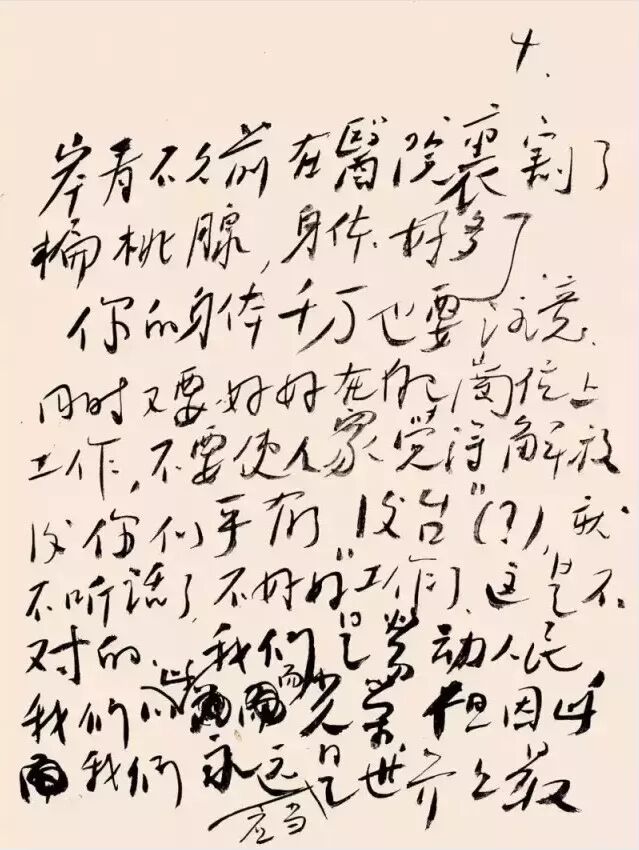 4.
岸青不久前在醫院裏割了
楄桃腺,身体好多了
你的身体千万也要注意.
同时又要好好在自己崗位上
工作,不要使人家觉得解放
后你们乎有了"后台"(?),就
不听话了,不好好"工作了.这是不
对的.我们是劳动人民
我们以此而光荣 但因此
而我们永远应当是世界上最